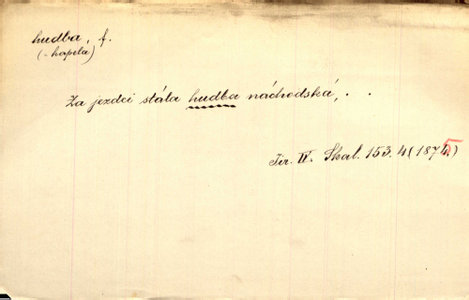 hudba, f.
(= kapela)
Za jezdci stála hudba náchodská, . .
Jir. IV. Skal. 153.4 (1875)